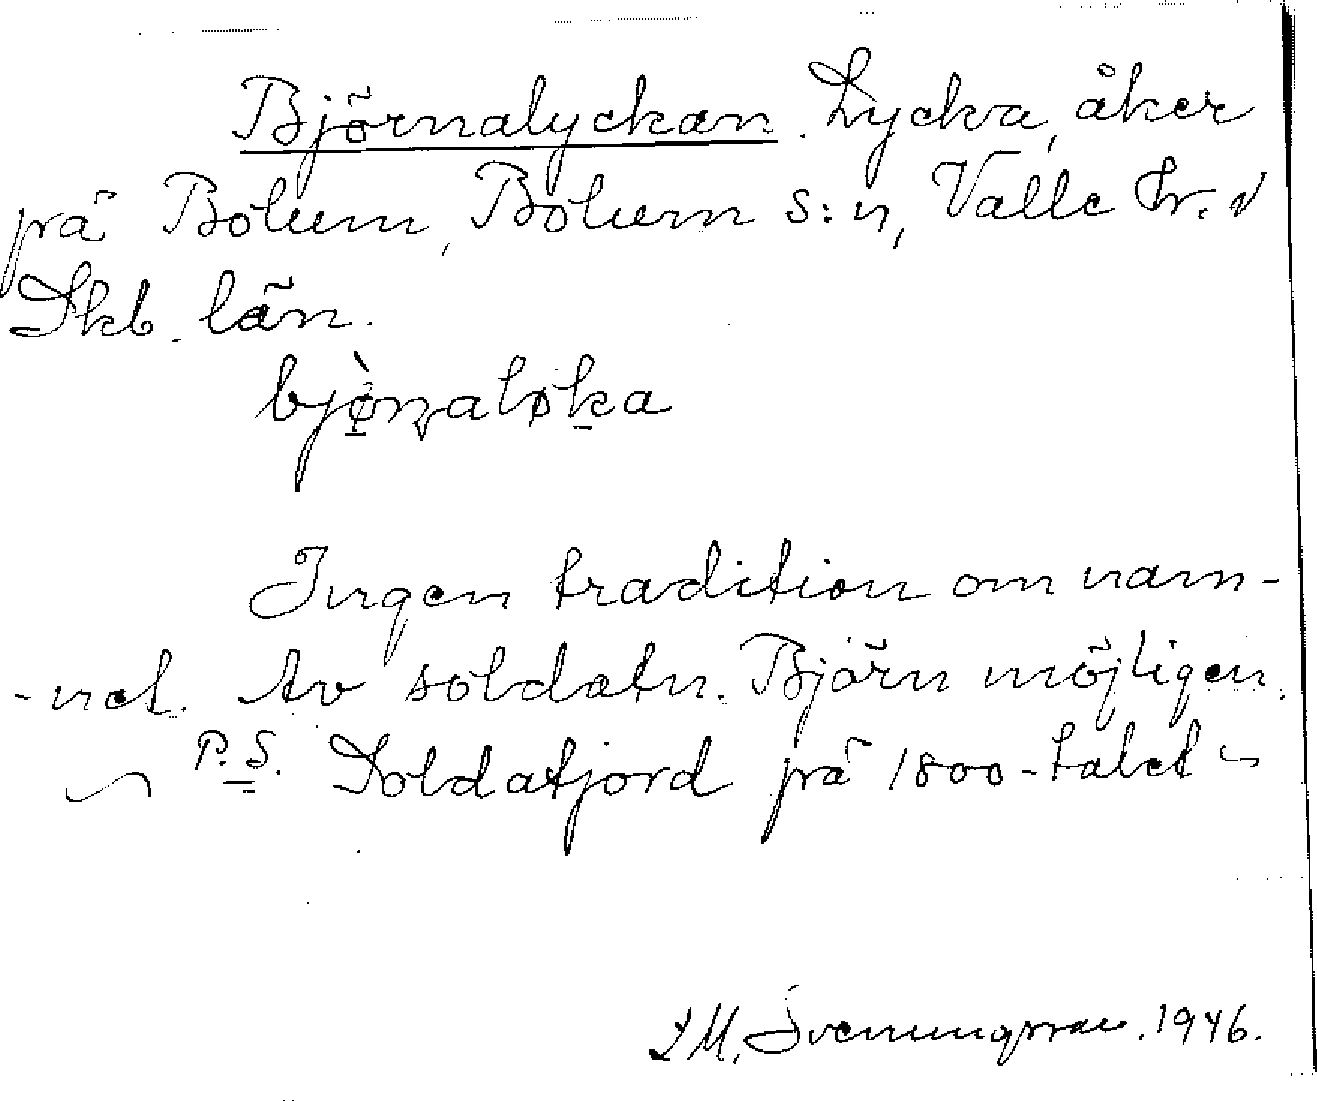 Björnalyckan. Lycka, åker
på Bolum, Bolum s:n, Valle hr.
Skb. län.
bjò̱rṇaløḵa
Ingen tradition om nam-
-net. Av soldatn. Björn möjligen.
P.S. Soldatjord på 1800-talet
Svenungsson. 1946.